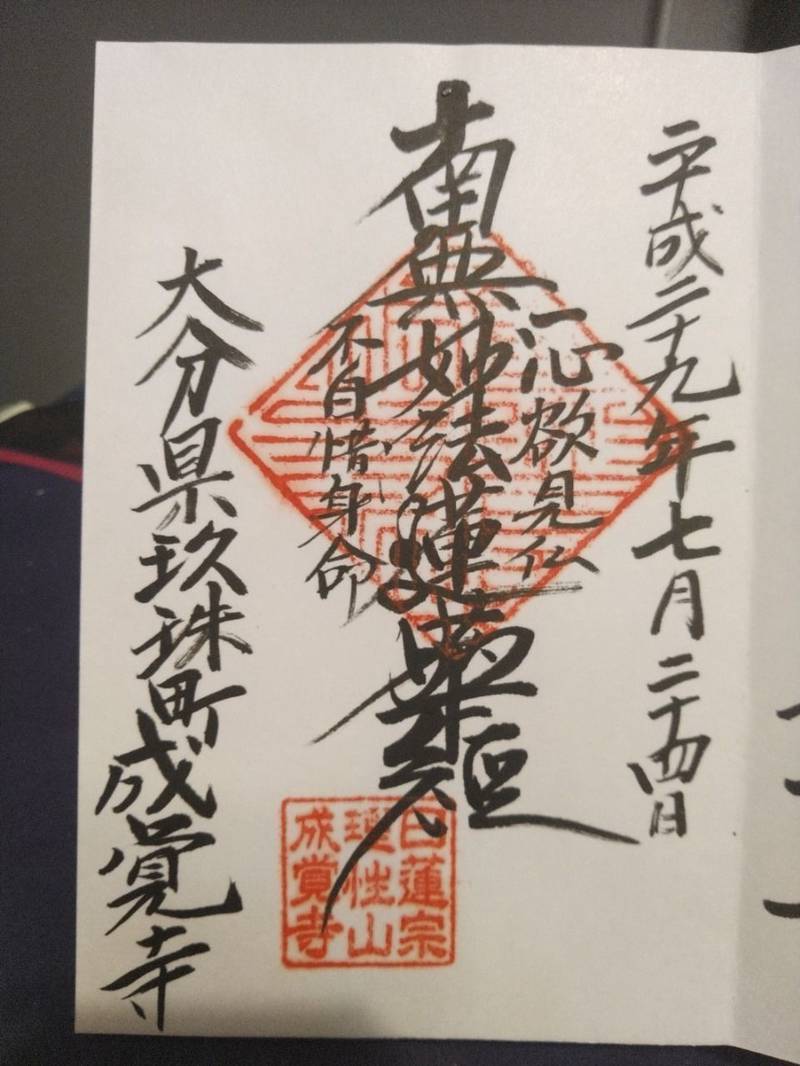 平成二十九年七月二十四日
一心欲見仏
南無妙法蓮華経
不自惜身命
大分県玖珠町成覚寺
日蓮宗
理性山
成覚寺